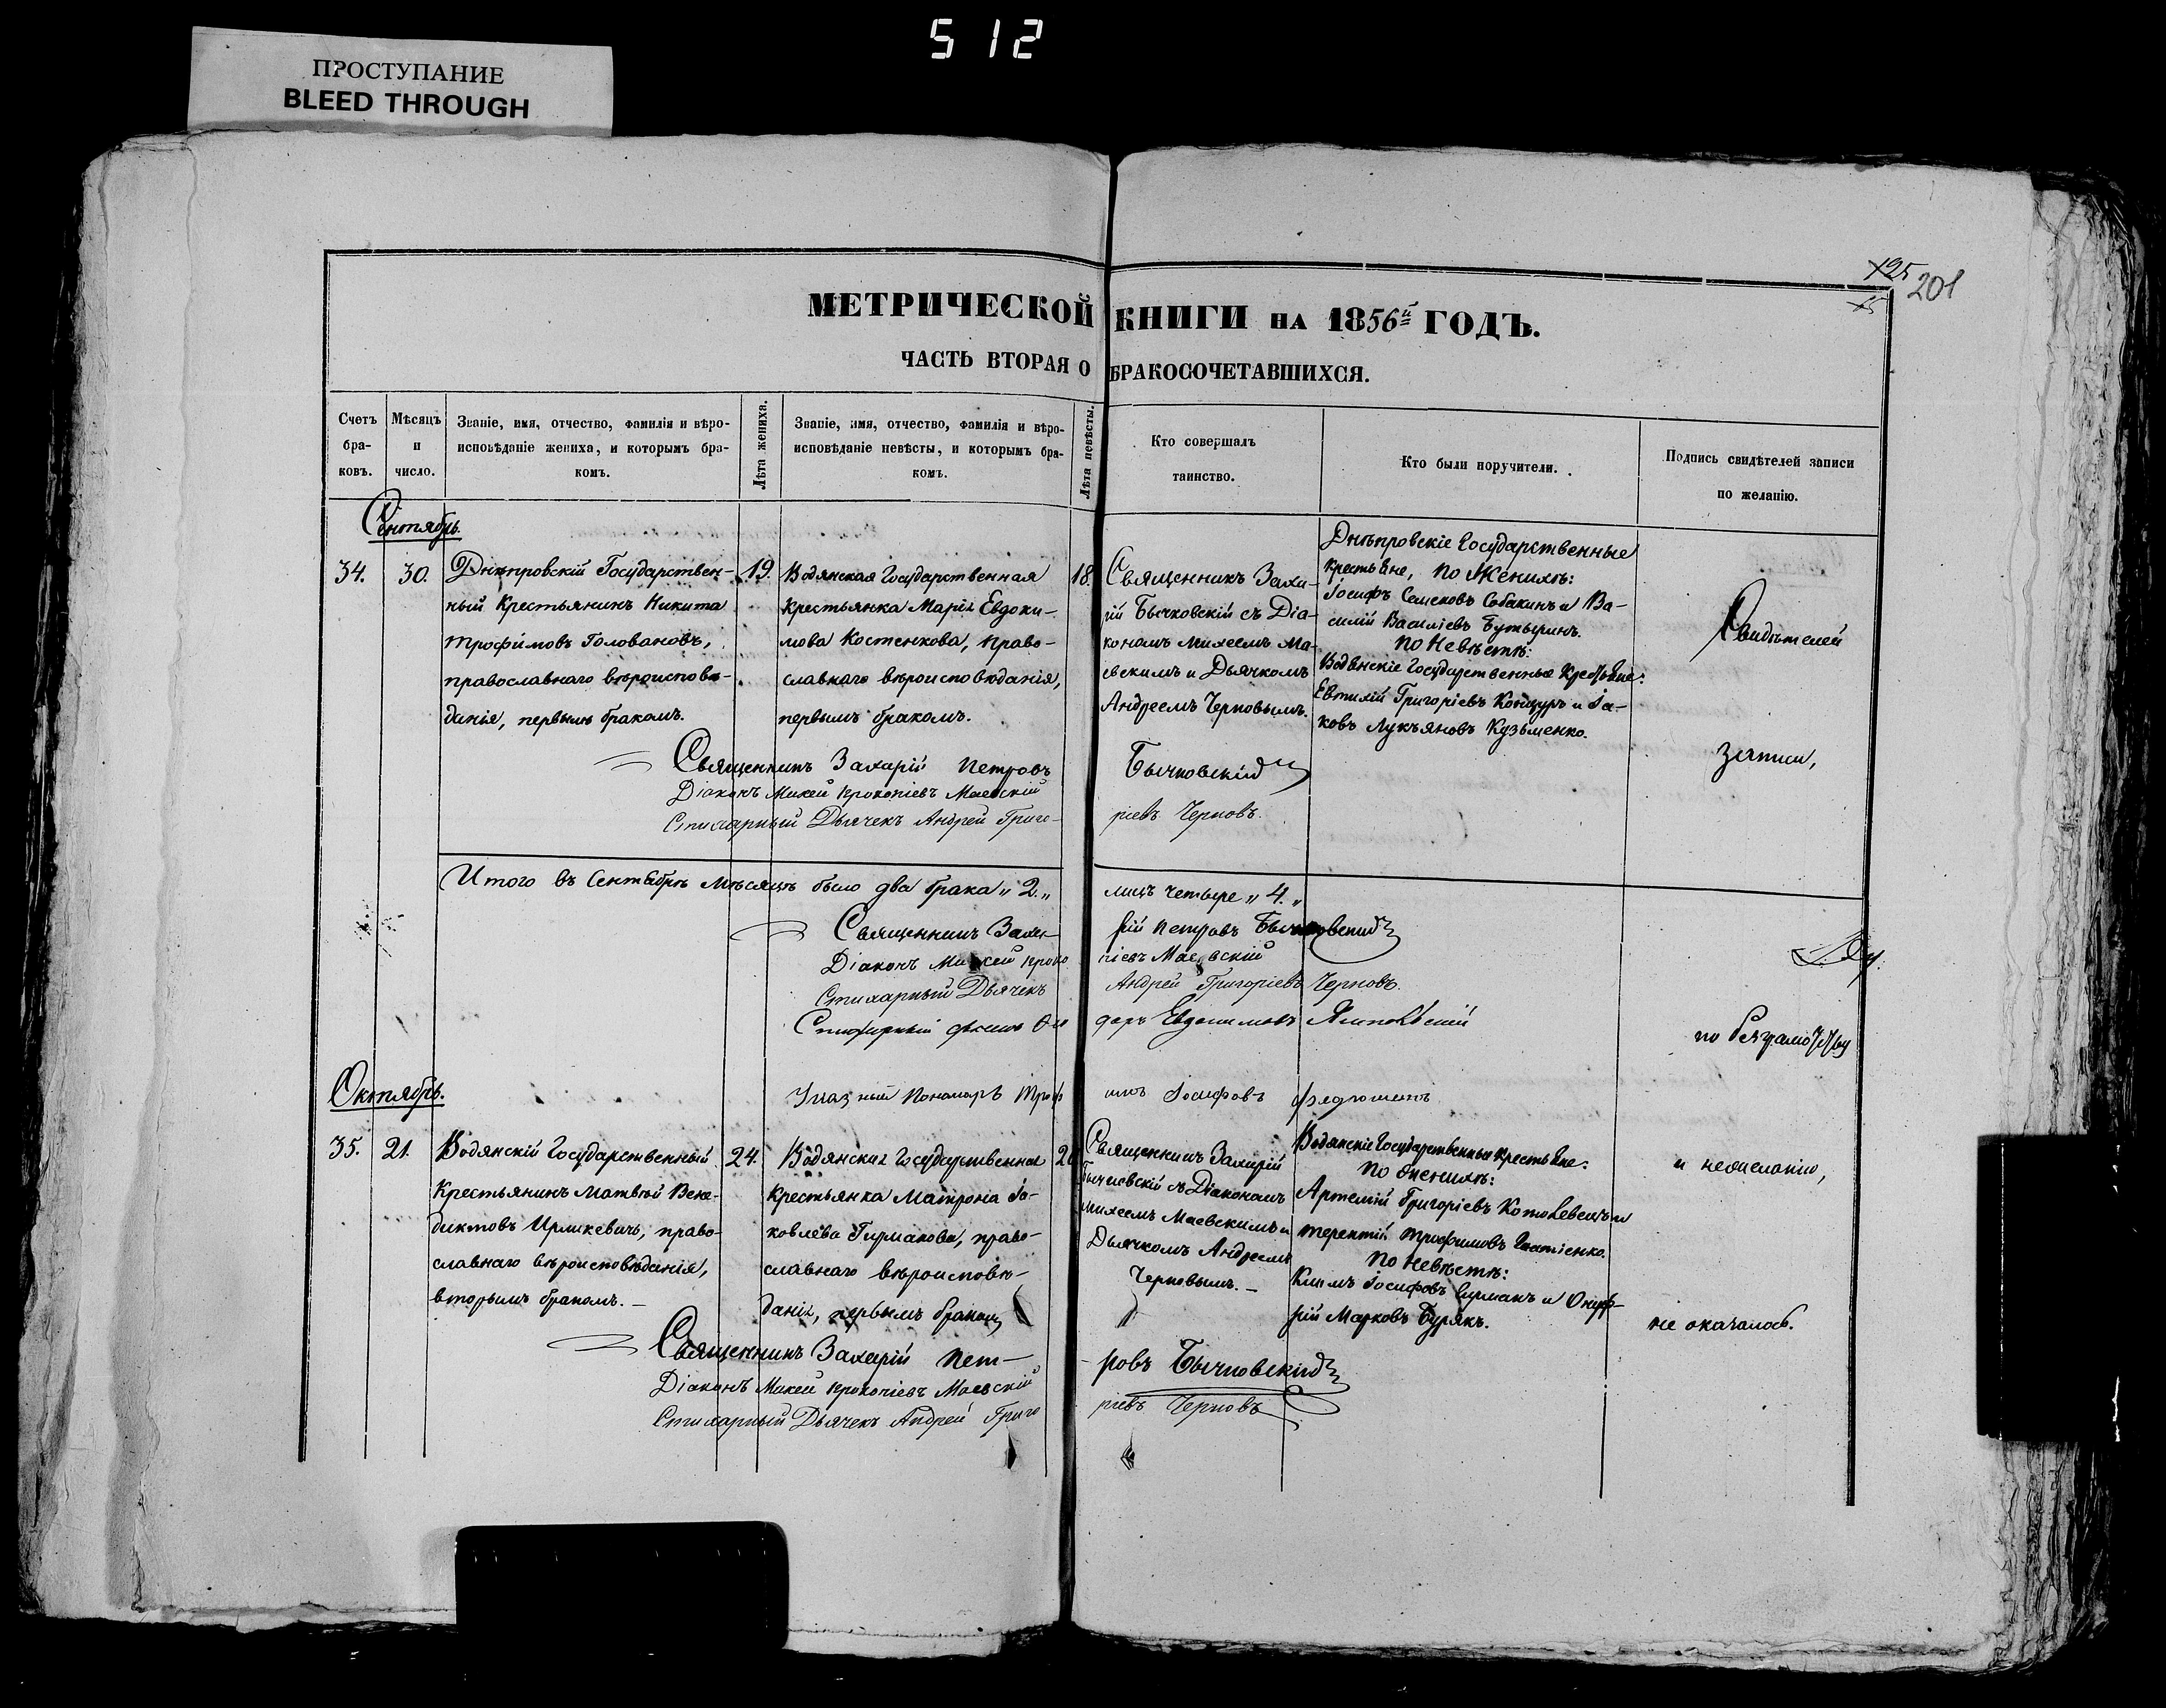 512
ПРОСТУПАНИЕ
BLEED THROUGH
201
МЕТРИЧЕСКОЙ КНИГИ НА 1856й ГОДЪ.
ЧАСТЬ ВТОРАЯ О БРАКОСОЧЕТАВШИХСЯ.
Счетъ
бра-
ковъ.
Мѣсяцъ
и
число.
Званіе, имя, отчество, фамилія и вѣро-
исповѣданіе жениха, и которымъ бра-
комъ.
Лѣта жениха.
Званіе, имя, отчество, фамилія и вѣро-
исповѣданіе невѣсты, и которымъ бра-
комъ.
Лѣта невѣсты.
Кто совершалъ
таинство.
Кто были поручители.
Подпись свидѣтелей записи
по желанію.
Сентябрь.
34.
30.
Днѣпровскій Государствен-
ный Крестьянинъ Никита
Трофимовъ Головановъ,
православнаго вѣроисповѣ-
данія, первымъ бракомъ.
19.
Водянская Государственная
Крестьянка Марія Евдоки-
мова Костенкова, право-
славнаго вѣроисповѣданія,
первымъ бракомъ.
18.
Священникъ Заха-
рій Бычковскій съ Діа-
кономъ Михеемъ Ма-
евскимъ и Дьячкомъ
Андреемъ Черновымъ.
Днѣпровскіе Государственные
крестьяне, По Женихѣ:
Іосифъ Семеновъ Собакинъ и Ва-
силій Василіевъ Бутыринъ.
По Невѣстѣ:
Водянскіе Государственные Крестьяне:
Евтихій Григоріевъ Концуръ и Іа-
ковъ Лукъяновъ Кузьменко.
Свидѣтелей
Священникъ Захарій Петровъ Бычковскій
Діаконъ Михей Прокопіевъ Маевскій
Стихарный Дьячекъ Андрей Григо- ріевъ Черновъ.
записи,
Итого въ Сентябрѣ мѣсяцѣ было два брака „2„ лицъ четыре „4.„
Священникъ Заха- рій Петровъ Бычковскій
Діаконъ Михей Проко піевъ Маевскій
Стихарный Дьячекъ Андрей Григоріевъ Черновъ.
Евдокимовъ
по безграмотству
Октябрь.
Указный Пономарь Троф имъ Іосифовъ
35.
21.
Водянскій Государственный
Крестьянинъ Матвѣй Вене-
диктовъ Ирликевичъ, право-
славнаго вѣроисповѣданія,
вторымъ бракомъ.
24.
Водянская Государственная
Крестьянка Матрона Іа-
ковлева Гирманова, право-
славнаго вѣроисповѣ-
данія, первымъ бракомъ
Священникъ Захарій
Бычковскій съ Діакономъ
Михеемъ Маевскимъ и
Дьячкомъ Андреемъ
Черновымъ.
Водянскіе Государственные Крестьяне:
По Женихѣ:
Артемій Григоріевъ и
Терентій Трофимовъ Игнатіенко.
По Невѣстѣ:
Климъ Іосифовъ Гирманъ и Онуф-
рій Марковъ Бурякъ.
и нежеланію,
не оказалось.
Священникъ Захарій Пет- ровъ Бычковскій
Діаконъ Михей Прокопіевъ Маевскій
Стихарный Дьячекъ Андрей Григо ріевъ Черновъ